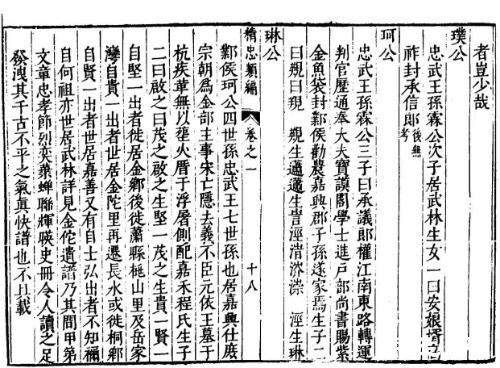 者豈少哉
璞公
忠武王孫霖公次子居武林生女一曰安娘壻
祚封承信郎後無考
珂公
忠武王孫霖公三子曰承議郎權江南東路轉運
判官歷通奉大夫寶謨閣學士進戶部尚書賜紫
金魚袋封鄴侯勸農嘉興郡子孫遂家焉生子二
曰覲曰現 覲生 邁生 涇 涇生琳
精忠類編 卷之一 十八
琳公
鄴侯珂公四世孫忠武王七世孫也居嘉興仕度
宗朝為金部主事宋亡隱去義不臣元依王墓于
杭疾革無以塟火厝于浮屠側配嘉禾程氏生子
二曰啟之曰茂之啟之生堅一茂之生貴一賢一
自堅一出者徙居金鄉後徙蕭縣桃山里及岳家
灣自貴一出者世居金陀里再遷長水或徙桐鄉
自賢一出者世居嘉善又有自士弘出者不知禰
自何祖亦世居武林詳見金陀遺譜乃其間甲第
文章忠孝節烈奕葉蟬聯輝暎史冊令人讀之足
發洩其千古不平之氣真快譜也不具載